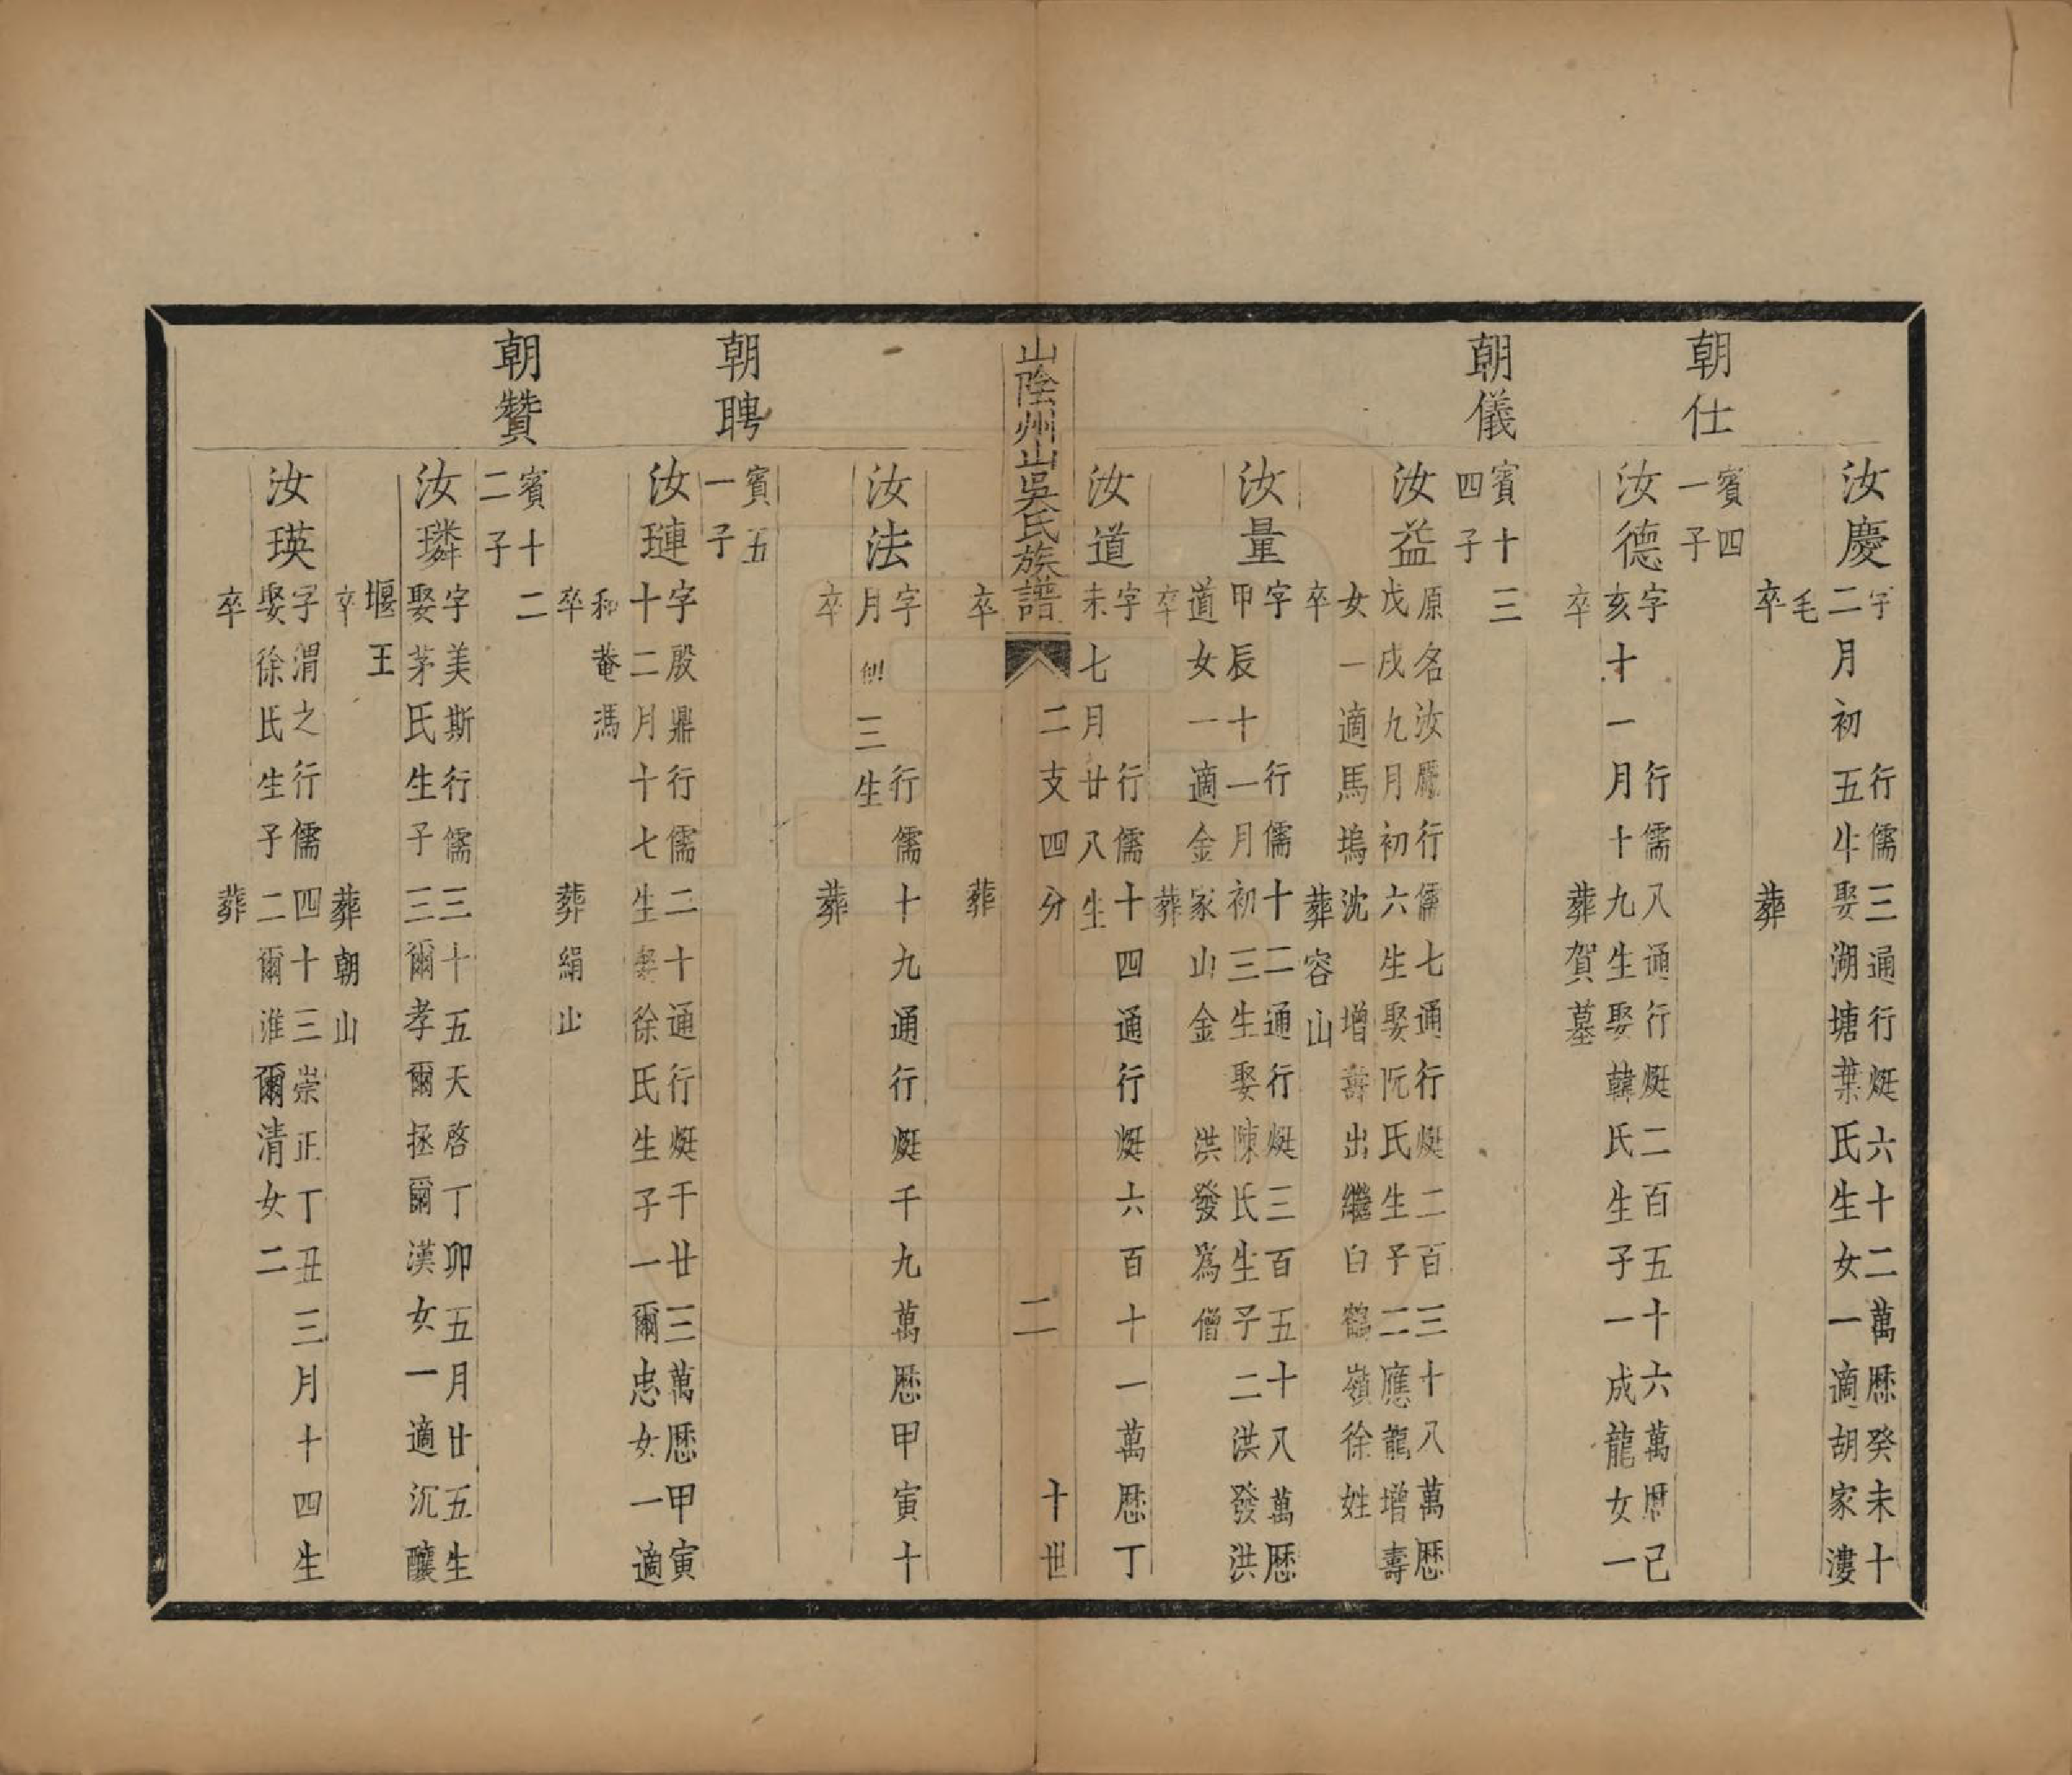 汝慶
字　行儒三通行烶六十二萬歷癸未十
二月初五生娶湖塘葉氏生女一適胡家漊
毛
卒　葬
朝仕
賓四
一子
汝德
字　行儒八通行烶二百五十六萬歷己
亥十一月十九生娶韓氏生子一成龍女一
卒　葬賀墓
朝儀
賓十三
四子
汝益
原名汝曆行儒七通行烶二百三十八萬歷
戊戌九月初六生娶阮氏生子二應龍增壽
女一適馬塢沈　增壽出繼白鶴嶺徐姓
卒　葬容山
汝量
字　行儒十二通行烶三百五十八萬歷
甲辰十一月初三生娶陳氏生子二洪發洪
道女一適金家山金　洪發為僧
卒　葬
汝道
字　行儒十四通行烶六百十一萬歷丁
未七月廿八生
山陰州山吳氏族譜　二支四分　二　十世
卒　葬
汝法
字　行儒十九通行烶千九萬歷甲寅十
月初三生
卒　葬
朝聘
賓五
一子
汝璉
字殷鼎行儒二十通行烶千廿三萬歷甲寅
十二月十七生娶徐氏生子一爾忠女一適
和菴馮
卒　葬絹山
朝贊
賓十二
二子
汝璘
字美斯行儒三十五天啓丁卯五月廿五生
娶茅氏生子三爾孝爾拯爾漢女一適沉釀
堰王
卒　葬朝山
汝瑛
字渭之行儒四十三崇正丁丑三月十四生
娶徐氏生子二爾淮爾清女二
卒　葬